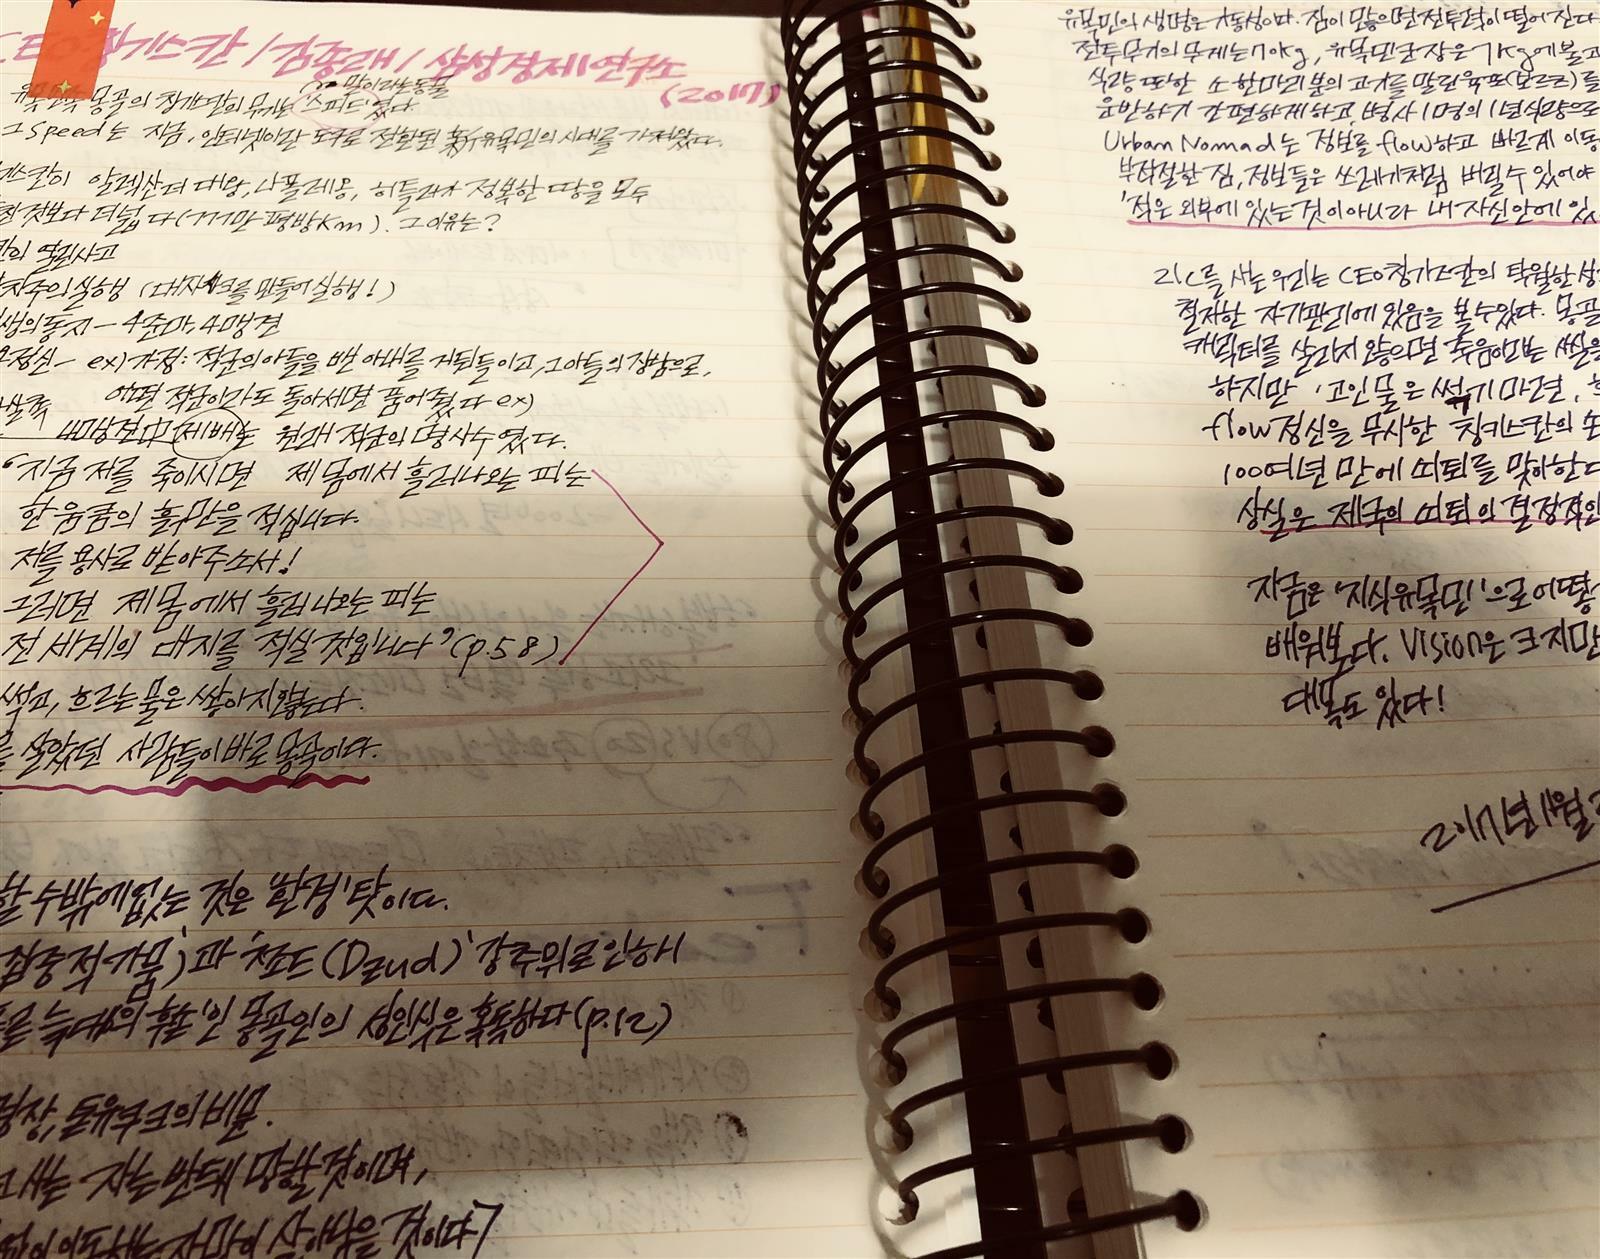 CEO칭기스칸 / 김종래 / 삼성경제연구소
(2017)
말이라는 동물
유목민족 몽골의 칭기스칸의 무기는 '스피드'였다
그 speed는 지금, 인터넷이란 도구로 전환된 新유목민의 시대를 가져왔다.
기스칸이 알렉산더 대왕, 나폴레옹, 히틀러가 정복한 땅을 모두
친 것보다 더 넓다(777만 평방Km). 그 이유는?
칸의 열린사고
주의 실행 (대자사크를 만들어 실행!)
생의 동지 - 4준마, 4맹견
정신 - ex) 가정: 적군의 아들을 밴 아내를 거둬들이고, 그 아들의 정함으로,
어떤 적군이라도 돌아서면 품어줬다 ex)
4맹견의 제베는 원래 적군의 명사수였다.
"지금 저를 죽이시면 제 몸에서 흘러나오는 피는
한 움큼의 흙만을 적십니다.
저를 용사로 받아주소서!
그러면 제 몸에서 흘러나오는 피는
전 세계의 대지를 적실 것입니다"(p.58)
썩고, 흐르는 물은 썩하지 않는다.
를 살았던 사람들이 바로 몽골이다.
할 수밖에 없는 것은 '환경' 탓이다.
집중적 가뭄)과 '쪼드(Dzud)' 강추위로 인하여
늑대의 후손'인 몽골인의 성인식은 혹독하다(p.12)
명장, 톤유쿠크의 비문.
고 사는 자는 반드시 망할 것이며,
이 이동하는 자만이 살아남을 것이다
유목민의 생명은 기동성이다. 짐이 많으면 전투력이 떨어진다
전투무기의 무게는 70kg, 유목민군장은 7kg에 불과
식량 또한 소 한마리분의 고기를 말린 육포(보르츠)를
운반하기 간편하게 하고, 병사 1명의 1년식량으로
Urban Nomad는 정보를 flow하고 빠르게 이동
부적절한 짐, 정보들은 쓰레기처럼 버릴 수 있어야
'적은 외부에 있는 것이 아니라 내 자신 안에 있
21C를 사는 우리는 CEO칭기스칸의 탁월한 성
철저한 자기관리에 있음을 볼 수 있다. 몽골
캐릭터를 살리지 않으면 죽음이라는 사실을
하지만 '고인물은 썩기 마련,
flow정신을 무시한 칭키스칸의 손
100여년 만에 쇠퇴를 맞이한다
상실은 제국의 쇠퇴의 결정적인
지금은 '지식유목민'으로 어떻
배워본다. Vision은 크지만
대목도 있다!
2017년 1월 2